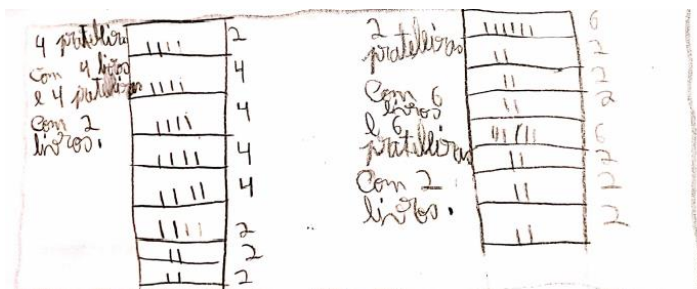 4 prateleira
com 4 livros
e 4 prateleiras
com 2
livros.
2
4
4
4
4
2
2
2
2
prateleiras
Com 6
livros
e 6
prateleiras
Com 2
livros.
6
2
2
2
6
2
2
2